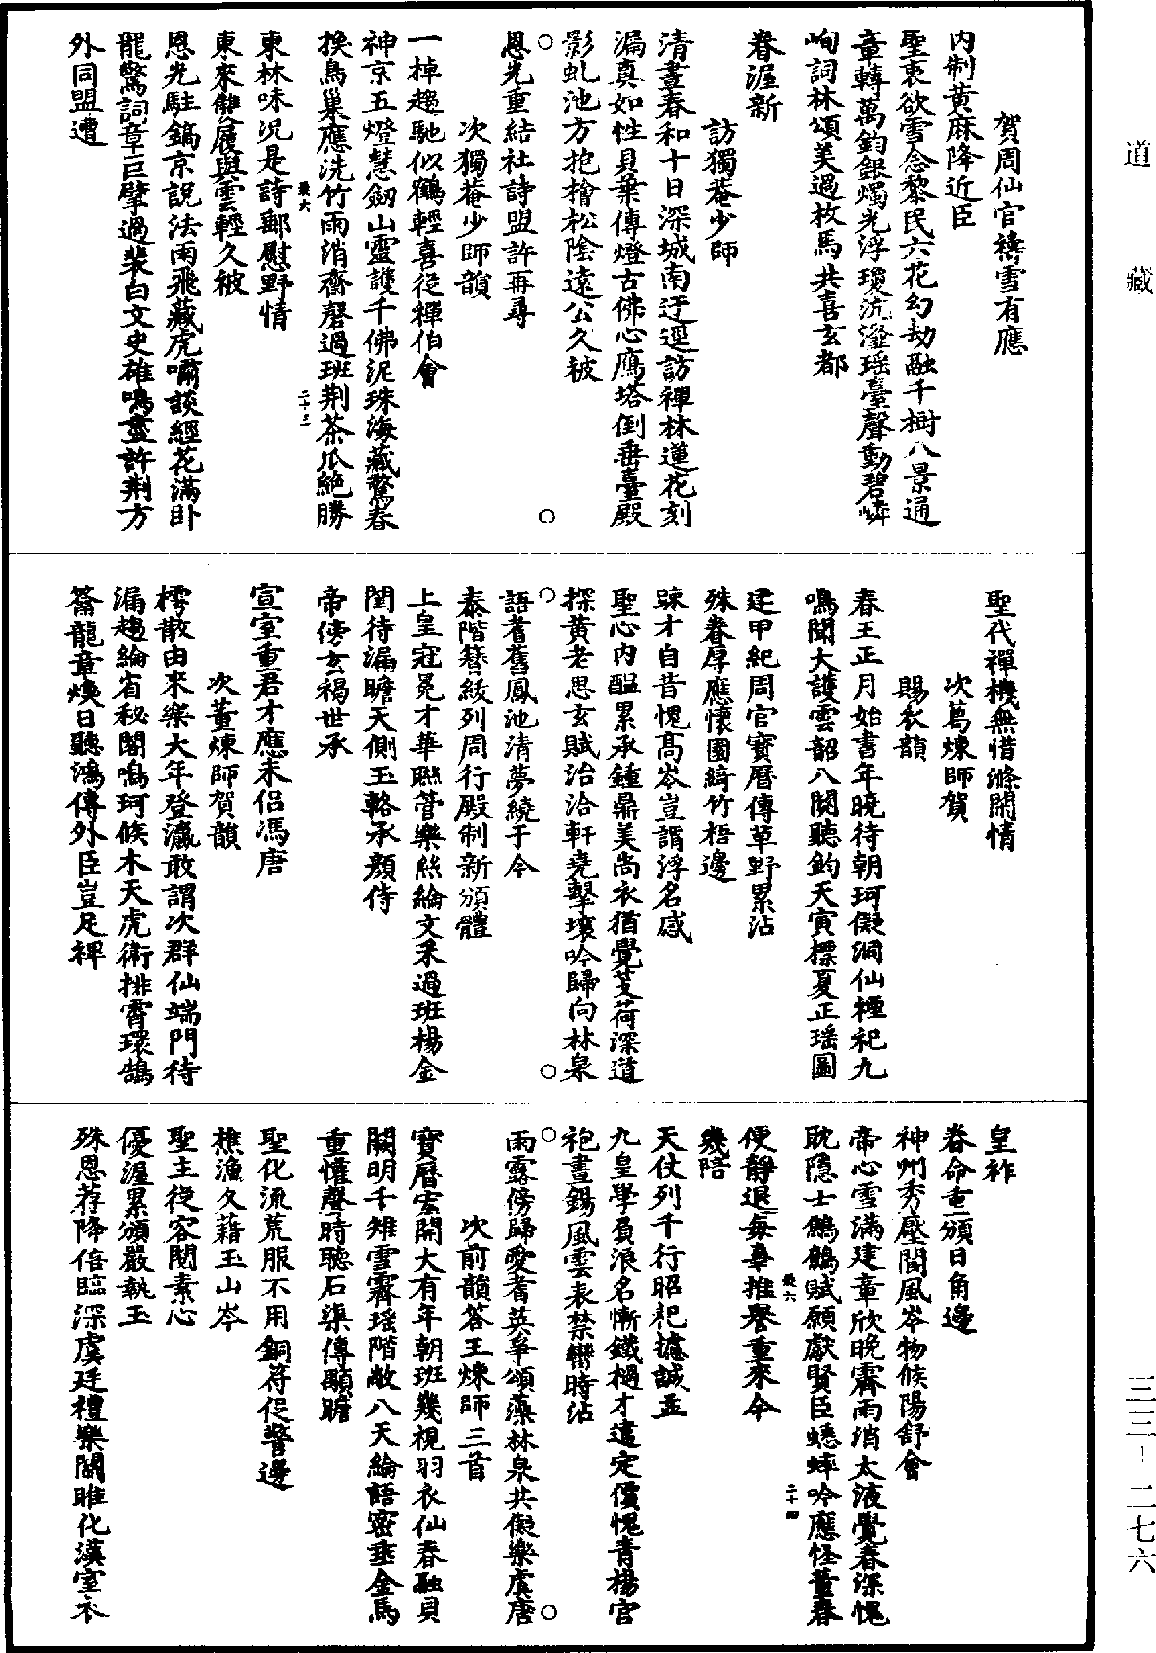 道藏
三三—二七六
賀周仙官禱雪有應
內制黃麻降近臣
聖衷欲雪念黎民六花幻劫融千樹八景通
章轉萬鈞銀燭光浮瓊沆瀣瑤臺聲動碧嶙
峋詞林頌美過枚馬共喜玄都
眷渥新
訪獨菴少師
清晝春和十日深城南迂逕訪禪林蓮花刻
漏真如性貝葉傳燈古佛心鴈塔倒垂臺殿
影虬池方抱檜松陰遠公久被
恩光重結社詩盟許再尋
次獨菴少師韻
一棹趨馳似鶴輕喜從禪伯會
神京五燈慧劒山靈護千佛泥珠海藏驚春
換鳥巢應洗竹雨消齋磬過班荊茶瓜絕勝
東林味況是詩郵慰野情
東來雙屨與雲輕久被
恩光駐鎬京說法雨飛藏虎嘯談經花滿卧
龍驚詞章巨擘過裴白文史雄鳴盡許荊方
外同盟遭
聖代禪機無惜滌閑情
次葛煉師賀
賜衣韻
春王正月始書年曉待朝珂儗洞仙禋祀九
鳴聞大護雲韶八闋聽鈞天寅摽夏正瑤圖
建甲紀周官寶曆傳草野累沾
殊眷厚應懷園綺竹梧邊
踈才自昔愧高岑豈謂浮名感
聖心內醞累承鍾鼎美尚衣猶覺芰荷深道
探黃老思玄賦治洽軒堯擊壤吟歸向林泉
語耆舊鳳池清夢繞于今
泰階簪紱列周行殿制新頒體
上皇冠冕才華聯管樂絲綸文采過班楊金
閨待漏瞻天側玉輅承顏侍
帝傍玄褐世承
宣室重君才應未侶馮唐
次董煉師賀韻
樗散由來樂大年登瀛敢謂次群仙端門待
漏趨綸省秘閣鳴珂候木天虎衛排霄環鵠
籥龍章煥日聽鴻傳外臣豈足裨
皇祚
眷命重頒日角邊
神州秀壓閬風岑物候陽舒會
帝心雪滿建章欣晚霽雨消太液覺春深愧
耽隱士鷦鶴賦願獻賢臣蟋蟀吟應怪董春
便靜退每辜推譽重來今
幾陪
天仗列千行昭祀攄誠並
九皇學負浪名慚鐵檛才遺定價愧青楊宮
袍晝錫風雲表禁轡時沾
雨露傍歸愛耆英爭頌藻林泉共儗樂虞唐
次前韻答王煉師三首
寶曆宏開大有年朝班幾視羽衣仙春融貝
闕明千雉雪霽瑤階敞八天綸語密垂金馬
重懽聲時聽石渠傳顒瞻
聖化流荒服不用銅符促警邊
樵漁久藉玉山岑
聖主從容閱素心
優渥累頒嚴執玉
殊恩荐降倍臨深虞廷禮樂關雎化漢室衣